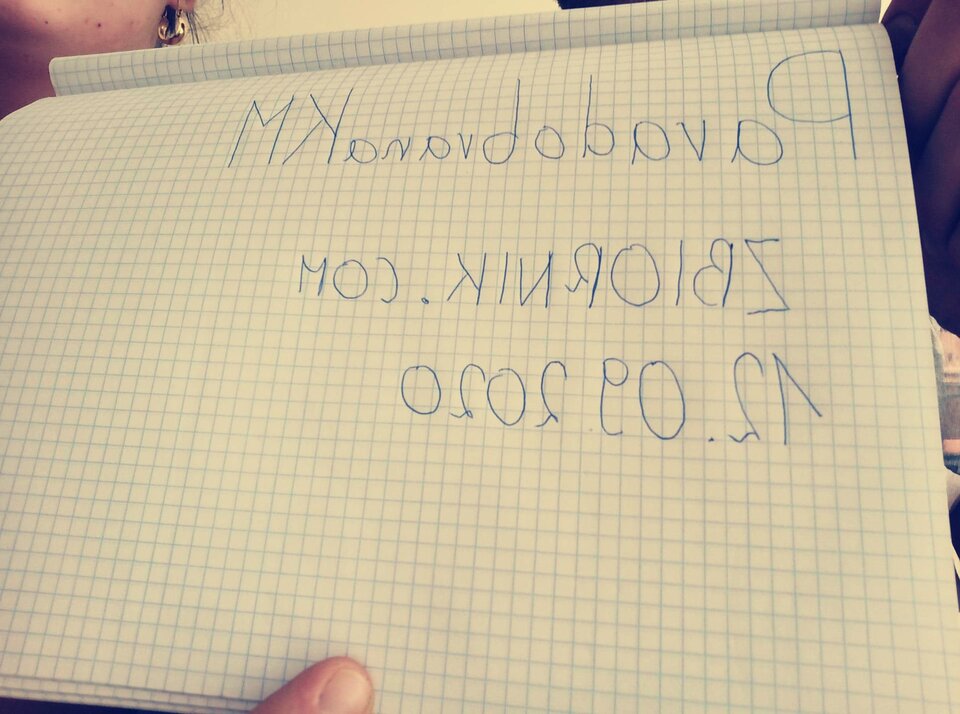 ParadobranaKM
ZBIORNIK.COM
12.09.2020